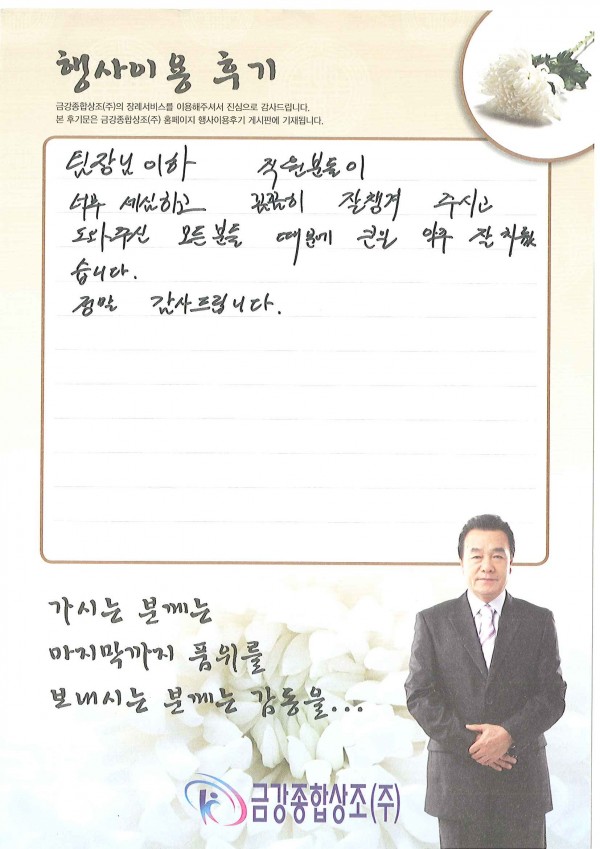 행사이용 후기
금강종합상조(주)의 장례서비스를 이용해주셔서 진심으로 감사드립니다.
본 후기문은 금강종합상조(주) 홈페이지 행사이용후기 게시판에 기재됩니다.
팀장님 이하 직원분들이
너무 세심하고 꼼꼼히 잘챙겨 주시고
도와주신 모든분들 때문에 큰일 아주 잘 치렀
습니다.
정말 감사드립니다.
가시는 분께는
마지막까지 품위를
보내시는 분께는 감동을...
금강종합상조(주)